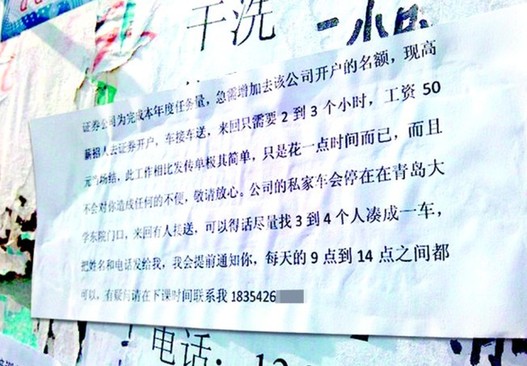 干洗
证券公司为完成本年度任务量，急需增加去该公司开户的名额，现高
薪招人去证券开户，车接车送，来回只需要 2 到 3 个小时，工资 50
元当场结，此工作相比发传单极其简单，只是花一点时间而已，而且
不会对你造线任何的不便，敬请放心。公司的私家车会停在在青岛大
学东院门口，来回有人接送，可以得话尽量找 3 到 4 个人凑成一车，
把姓名和电话发给我，我会提前通知你，每天的 9 点到 14 点之间都
可以，有疑问请在下课时间联系我 1835426
电话：